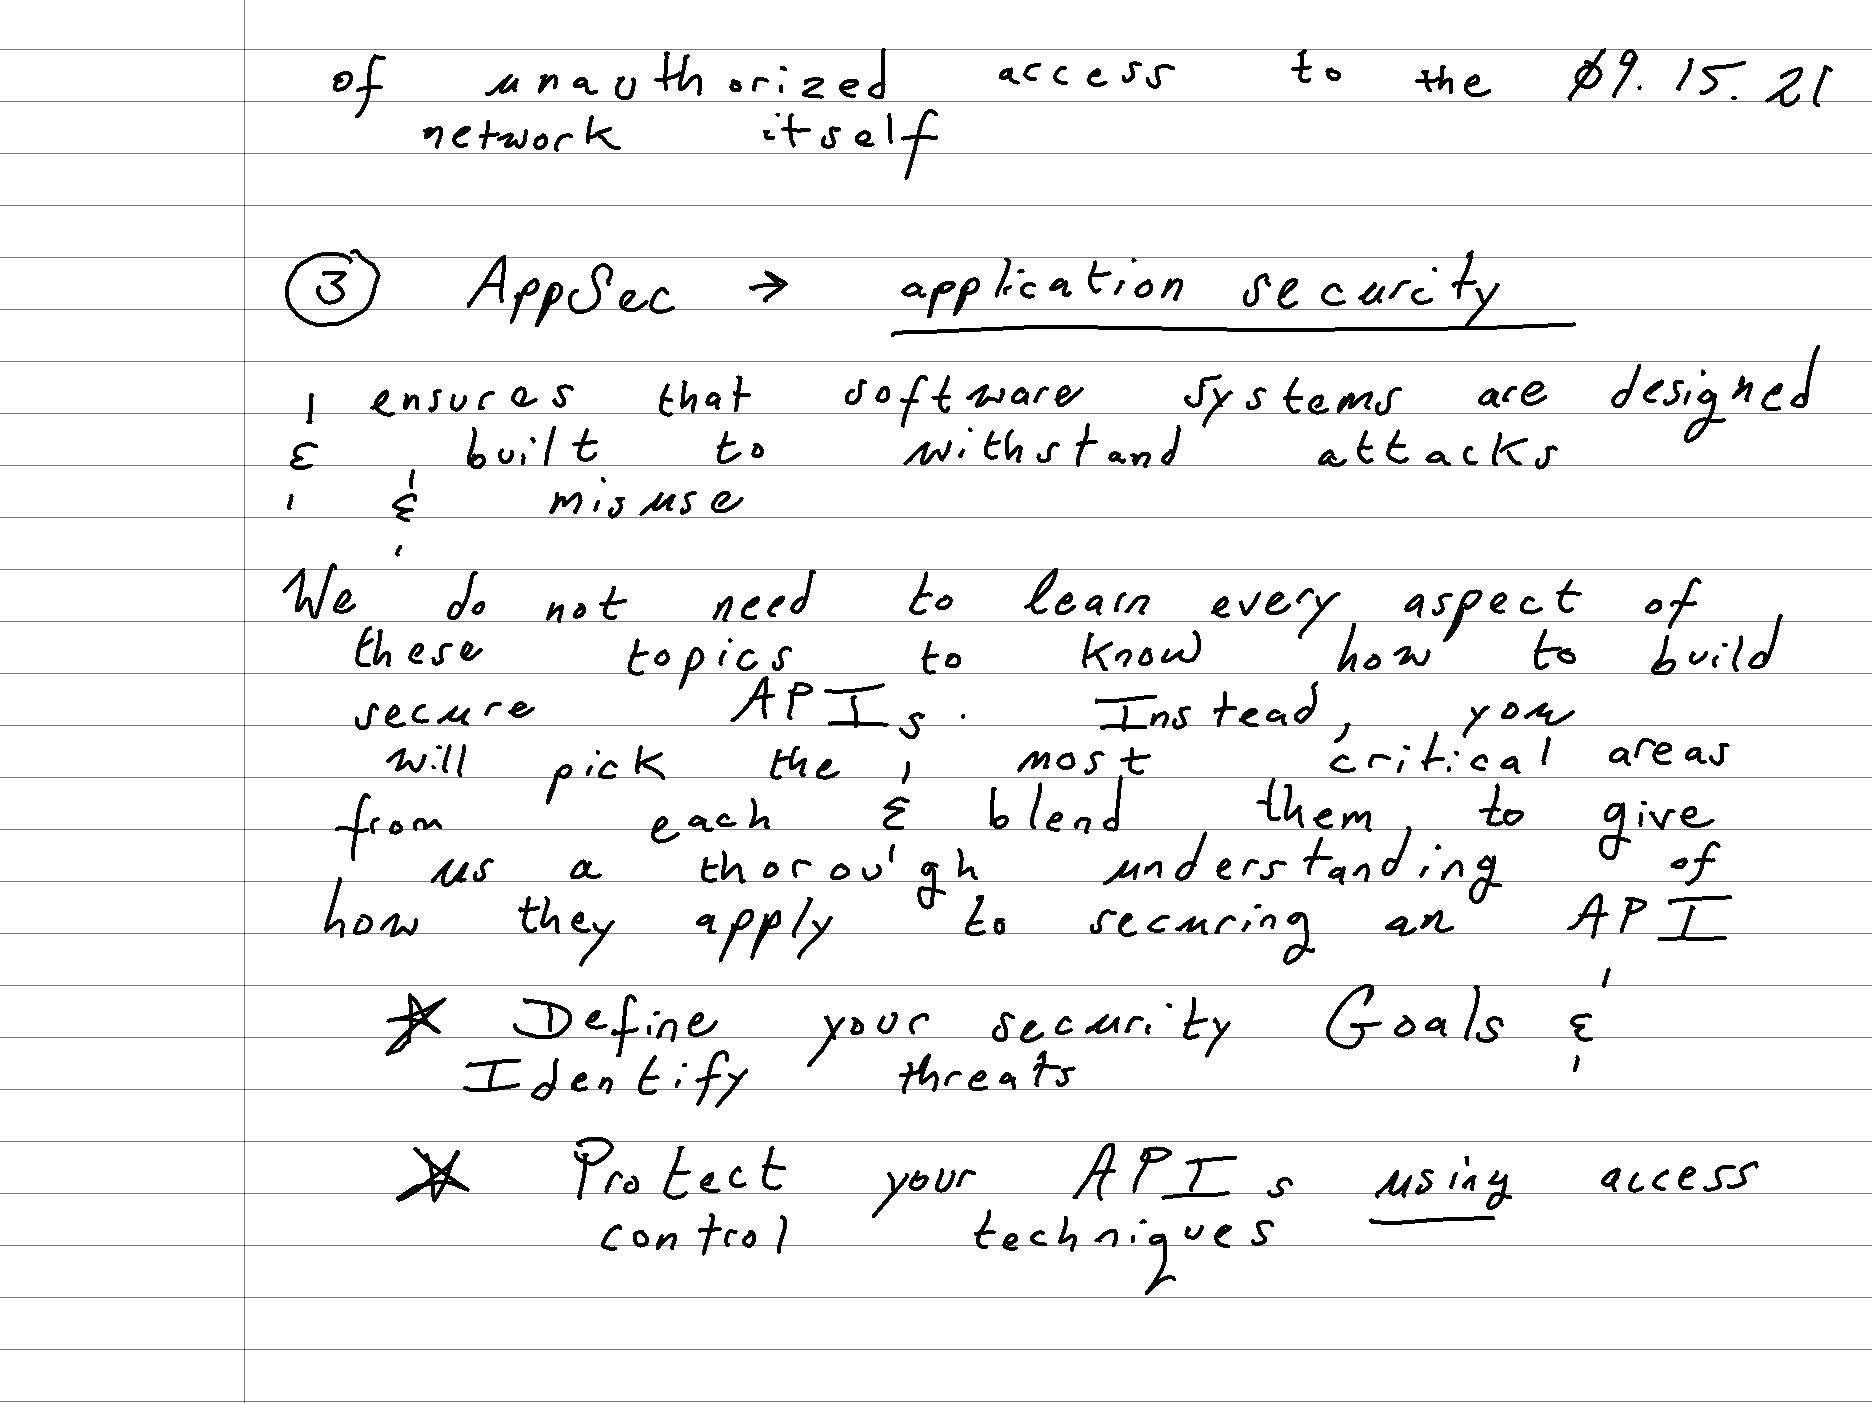 of unauthorized access to the 09.15.21
network itself
③ AppSec → application security
ensures that software systems are designed
& built to withstand attacks
& misuse
We do not need to learn every aspect of
these topics to know how to build
secure APIs. Instead, you
will pick the most critical areas
from each & blend them to give
us a thorough understanding of
how they apply to securing an API
☆ Define your security Goals &
Identify threats
☆ Protect your APIs using access
control techniques